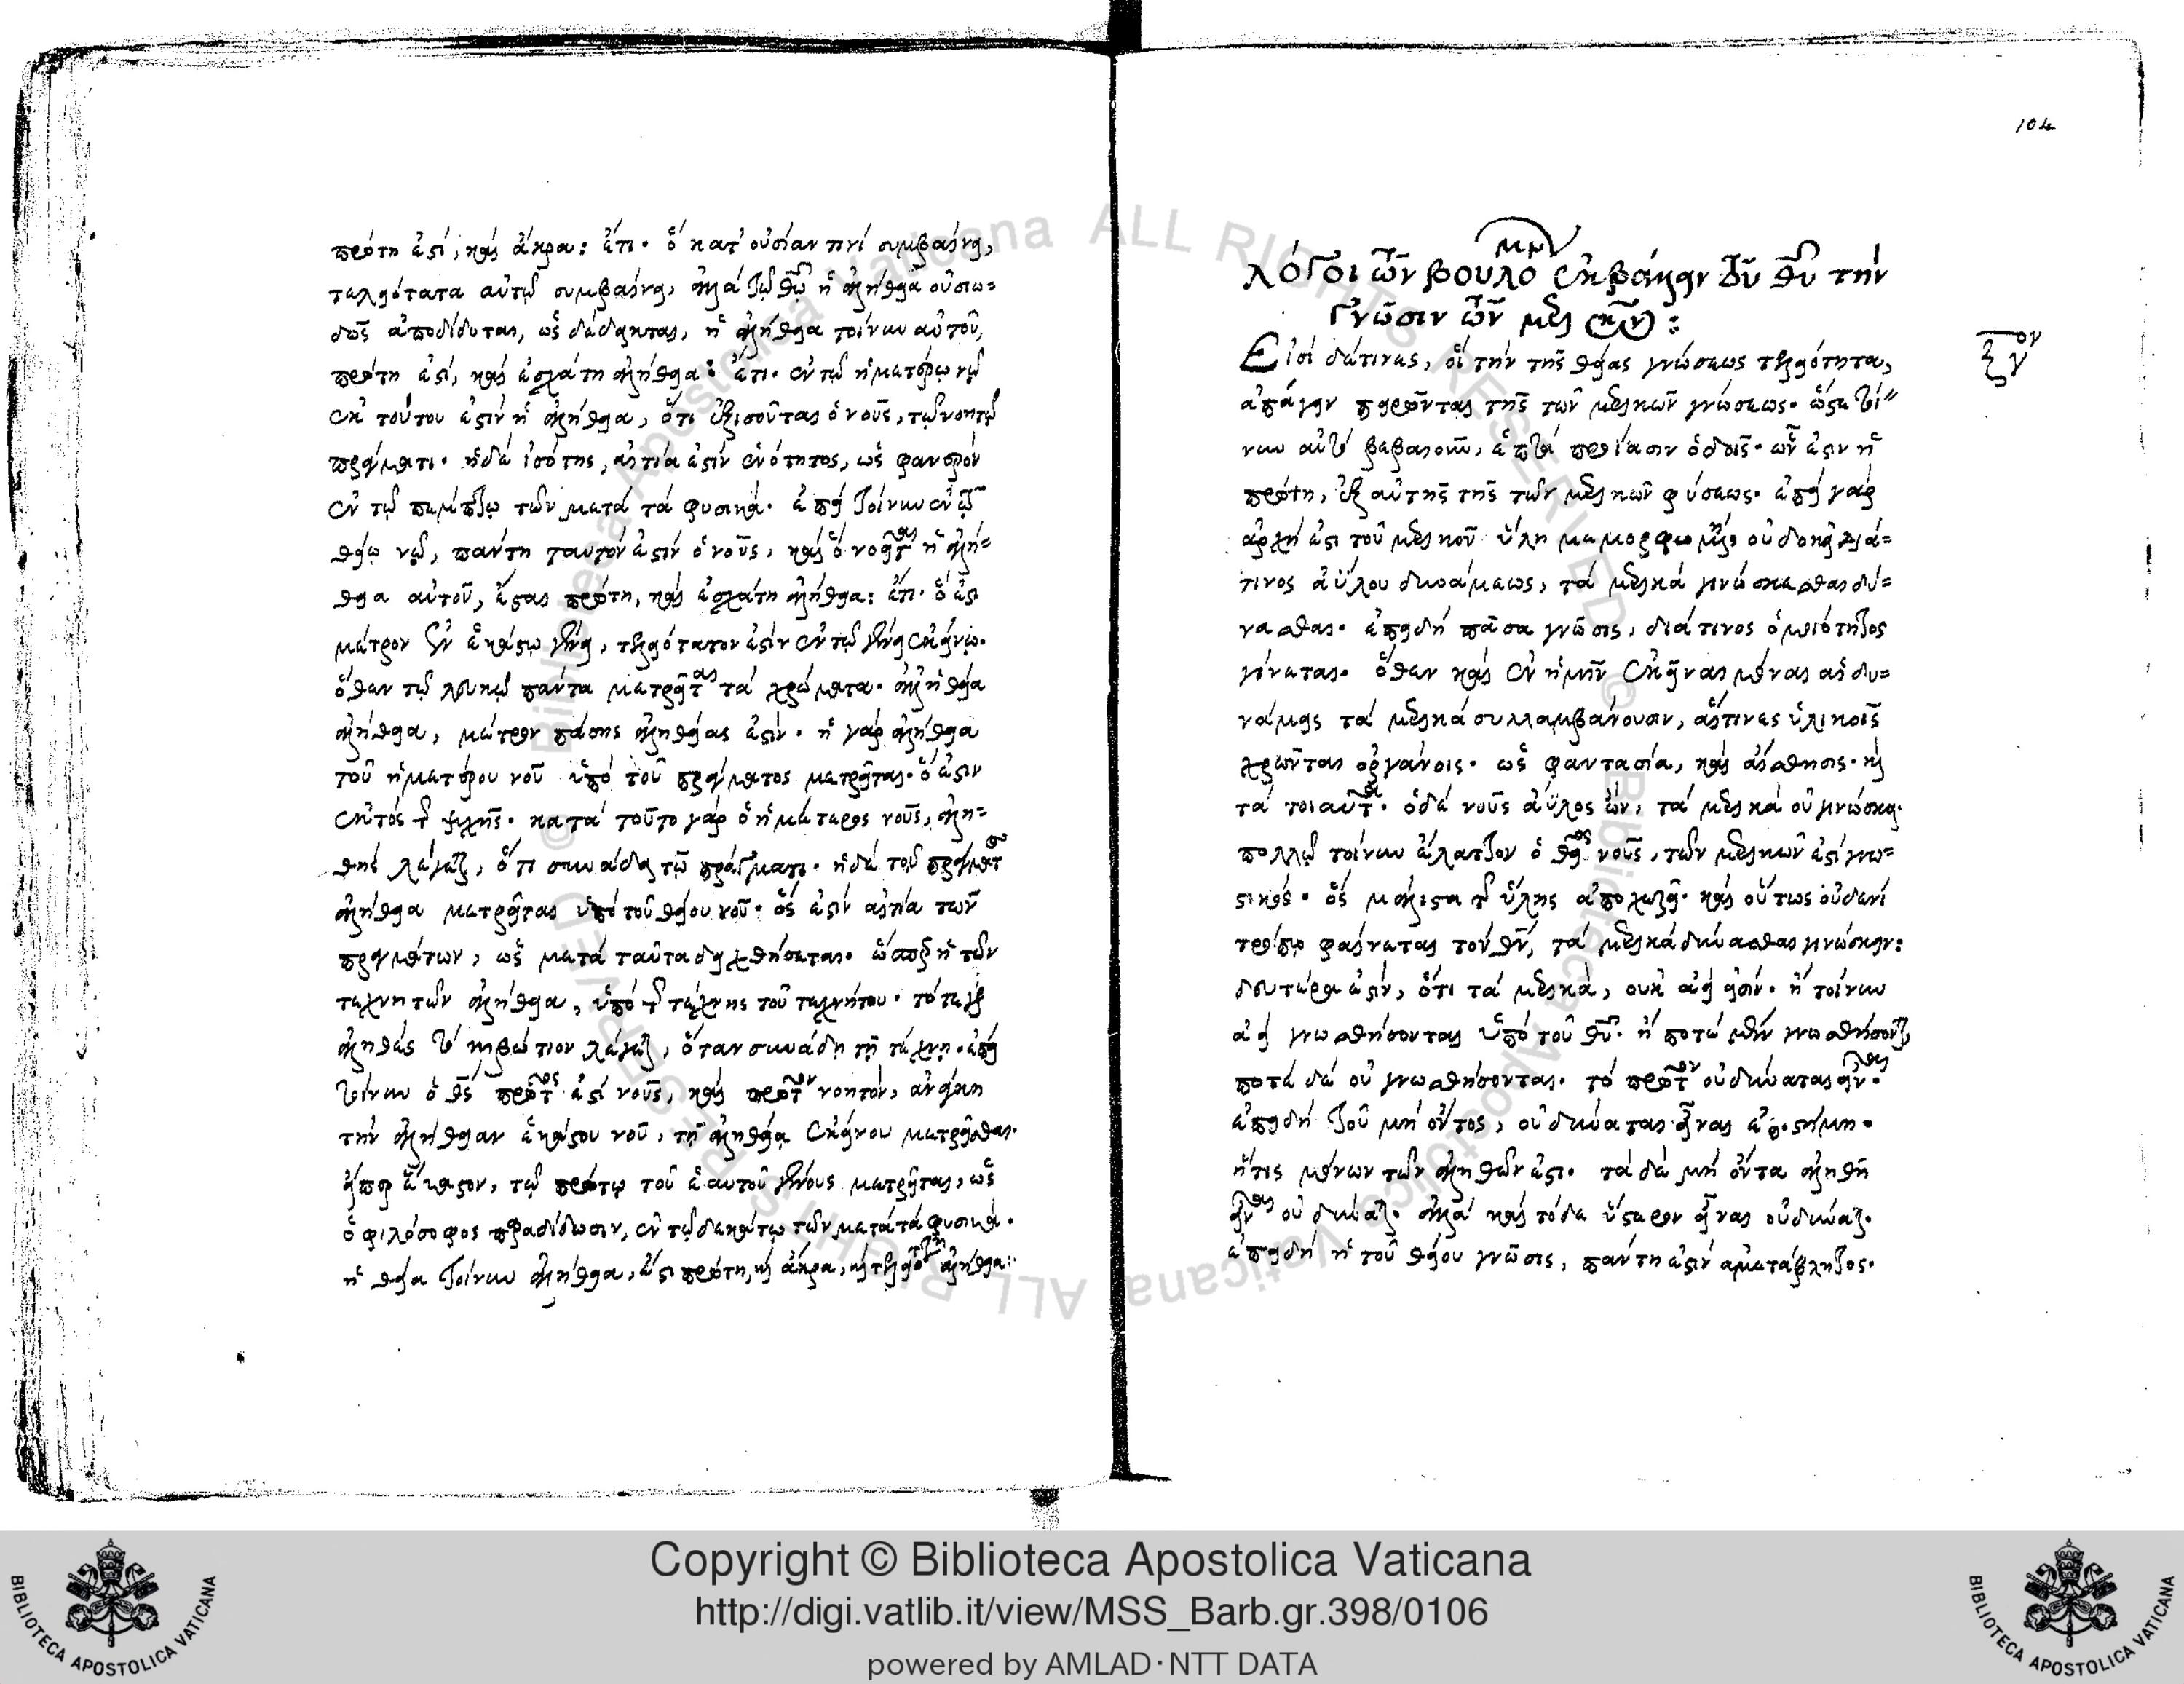 πρώτη ἐστί, καὶ ἄκρα: ἔτι. ὃ κατ' οὐσίαν τινὶ συμβαίνει,
τελειότατα αὐτῷ συμβαίνει, ἀλλὰ τῷ θῶ ἡ ἀλήθεια οὐσιω=
δῶς ἀποδίδοται, ὡς δέδεικται, ἡ ἀλήθεια τοίνυν αὐτοῦ,
πρώτη ἐστί, καὶ ἐσχάτη ἀλήθεια: ἔτι. ἐν τῷ ἡμετέρῳ νῷ
ἐκ τούτου ἐστὶν ἡ ἀλήθεια, ὅτι ἐξισοῦται ὁ νοῦς, τῷ νοητῷ
πράγματι. ἡ δὲ ἰσότης, αἰτία ἐστὶν ἑνότητος, ὡς φανερὸν
ἐν τῷ πέμπτῳ τῶν μετὰ τὰ φυσικά. ἐπεὶ τοίνυν ἐν τῷ
θείῳ νῷ, πάντη ταυτόν ἐστιν ὁ νοῦς, καὶ ὃ νοεῖται ἡ ἀλή=
θεια αὐτοῦ, ἔσται πρώτη, καὶ ἐσχάτη ἀλήθεια: ἔτι. ὅ ἐστι
μέτρον ἐν ἑκάστῳ γένει, τελειότατόν ἐστιν ἐν τῷ γένει ἐκείνῳ.
ὅθεν τῷ λευκῷ πάντα μετρεῖται τὰ χρώματα. ἀλλ' ἡ θεία
ἀλήθεια, μέτρον πάσης ἀληθείας ἐστίν. ἡ γὰρ ἀλήθεια
τοῦ ἡμετέρου νοῦ ὑπὸ τοῦ πράγματος μετρεῖται. ὅ ἐστιν
ἐκτὸς τῆς ψυχῆς. κατὰ τοῦτο γὰρ ὁ ἡμέτερος νοῦς, ἀλη=
θὴς λέγεται, ὅτι συνάδει τῷ πράγματι. ἡ δὲ τοῦ πράγματος
ἀλήθεια μετρεῖται ὑπὸ τοῦ θείου νοῦ. ὅς ἐστιν αἰτία τῶν
πραγμάτων, ὡς μετὰ ταῦτα δειχθήσεται. ὥσπερ ἡ τῶν
τεχνητῶν ἀλήθεια, ὑπὸ τῆς τέχνης τοῦ τεχνήτου. τότε γὰρ
ἀληθὲς τὸ κιβώτιον λέγεται, ὅταν συνάδη τῇ τέχνῃ. ἐπεὶ
τοίνυν ὁ θς πρῶτός ἐστι νοῦς, καὶ πρῶτον νοητόν, ἀνάγκη
τὴν ἀλήθειαν ἑκάστου νοῦ, τῇ ἀληθείᾳ ἐκείνου μετρεῖσθαι.
εἴπερ ἕκαστον, τῷ πρώτῳ τοῦ ἑαυτοῦ γένους μετρεῖται, ὡς
ὁ φιλόσοφος παραδίδωσιν, ἐν τῷ δεκάτῳ τῶν μετὰ τὰ φυσικά.
ἡ θεία τοίνυν ἀλήθεια, ἐστὶ πρώτη, καὶ ἄκρα, καὶ τελειοτάτη ἀλήθεια:
104
λόγοι τῶν βουλομένων ἐκβάλλειν τοῦ θυ τὴν
γνῶσιν τῶν μερικῶν:
ξγον
Εἰσὶ δέ τινες, οἳ τὴν τῆς θείας γνώσεως τελειότητα,
ἀπάγειν πειρῶνται τῆς τῶν μερικῶν γνώσεως. ὥστε τοί"
νυν αὐτὸ βεβαιοῦν, ἑπτὰ προΐασιν ὁδοῖς. ὧν ἐστιν ἡ
πρώτη, ἐξ αὐτῆς τῆς τῶν μερικῶν φύσεως. ἐπεὶ γὰρ
ἀρχή ἐστι τοῦ μερικοῦ ὕλη μεμορφωμένη οὐ δοκεῖ διά=
τινος ἀΰλου δυνάμεως, τὰ μερικὰ γινώσκεσθαι δύ=
νασθαι. ἐπειδὴ πᾶσα γνῶσις, διά τινος ὁμοιότητος
γίνεται. ὅθεν καὶ ἐν ἡμῖν ἐκεῖναι μόναι αἱ δυ=
νάμεις τὰ μερικὰ συλλαμβάνουσιν, αἵτινες ὑλικοῖς
χρῶνται ὀργάνοις. ὡς φαντασία, καὶ αἴσθησις. καὶ
τὰ τοιαῦτα. ὁ δὲ νοῦς ἄϋλος ὤν, τὰ μερικὰ οὐ γινώσκει.
πολλῷ τοίνυν ἔλαττον ὁ θεῖος νοῦς, τῶν μερικῶν ἐστὶ γνω=
στικός. ὃς μάλιστα τῆς ὕλης ἀποχωρεῖ. καὶ οὕτως οὐδενὶ
τρόπῳ φαίνεται τὸν θν, τὰ μερικὰ δύνασθαι γινώσκειν:
δευτέρα ἐστίν, ὅτι τὰ μερικά, οὐκ ἀεί εἰσιν. ἢ τοίνυν
ἀεὶ γνωσθήσονται ὑπὸ τοῦ θυ. ἤ ποτε μὲν γνωσθήσονται,
ποτὲ δὲ οὐ γνωσθήσονται. τὸ πρῶτον οὐ δύναται εἶναι.
ἐπειδὴ τοῦ μὴ ὄντος, οὐ δύναται εἶναι ἐπιστήμη.
ἥτις μόνων τῶν ἀληθῶν ἐστι. τὰ δὲ μὴ ὄντα ἀληθῆ
εἶναι οὐ δύναται. ἀλλὰ καὶ τόδε ὕστερον εἶναι οὐ δύναται.
ἐπειδὴ ἡ τοῦ θείου γνῶσις, πάντη ἐστὶν ἀμετάβλητος.
Copyright © Biblioteca Apostolica Vaticana
http://digi.vatlib.it/view/MSS_Barb.gr.398/0106
powered by AMLAD·NTT DATA